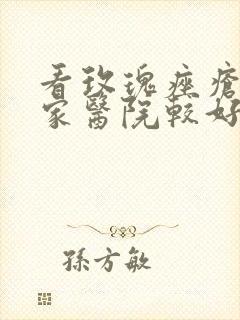 看玫瑰痤瘡
家醫院較好
孫方敏